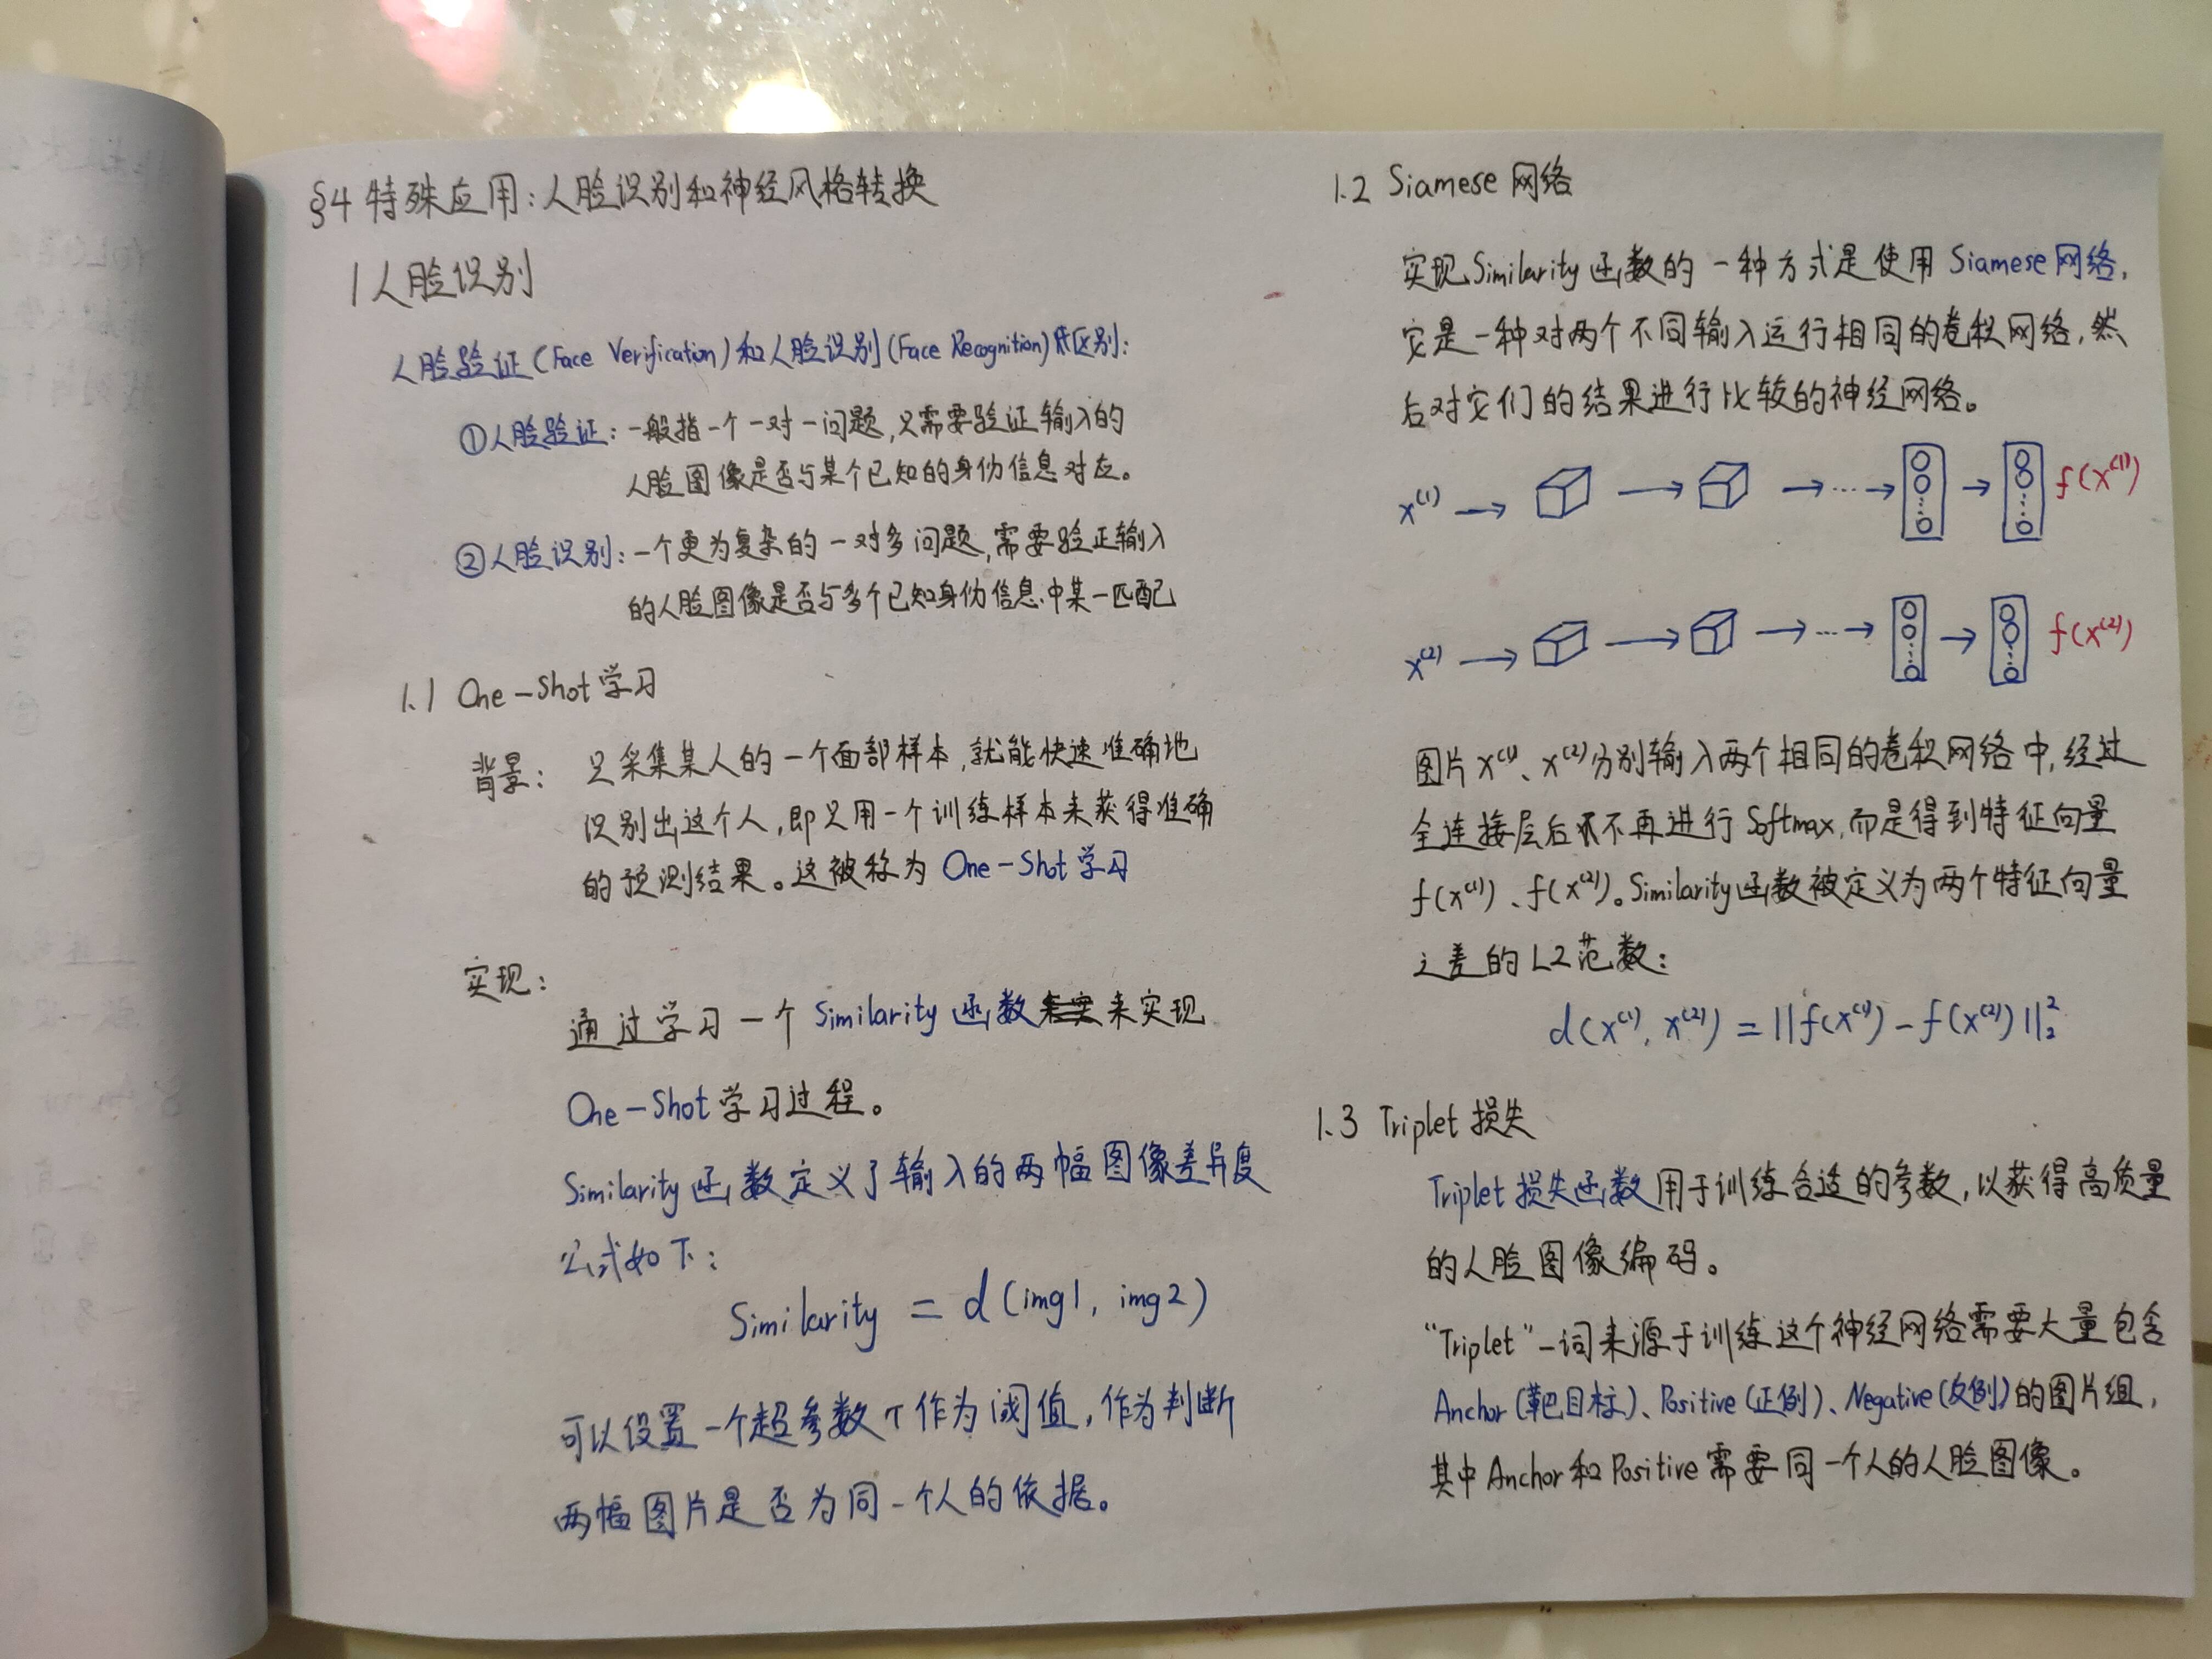 §4 特殊应用：人脸识别和神经风格转换
1 人脸识别
人脸验证(Face Verification)和人脸识别(Face Recognition)的区别：
①人脸验证：一般指一个一对一问题，只需要验证输入的
人脸图像是否与某个已知的身份信息对应。
②人脸识别：一个更为复杂的一对多问题，需要验证输入
的人脸图像是否与多个已知身份信息中某一匹配
1.1 One-Shot 学习
背景： 只采集某人的一个面部样本，就能快速准确地
识别出这个人，即只用一个训练样本来获得准确
的预测结果。这被称为 One-Shot 学习
实现：
通过学习一个 Similarity 函数来实现
One-Shot 学习过程。
Similarity 函数定义了输入的两幅图像差异度
公式如下：
Similarity = d(img1, img2)
可以设置一个超参数 τ 作为阈值，作为判断
两幅图片是否为同一个人的依据。
1.2 Siamese 网络
实现Similarity 函数的一种方式是使用 Siamese 网络，
它是一种对两个不同输入运行相同的卷积网络，然
后对它们的结果进行比较的神经网络。
x⁽¹⁾ → → → ... → → f(x⁽¹⁾)
x⁽²⁾ → → → ... → → f(x⁽²⁾)
图片 x⁽¹⁾、x⁽²⁾分别输入两个相同的卷积网络中，经过
全连接层后不再进行 Softmax，而是得到特征向量
f(x⁽¹⁾)、f(x⁽²⁾)。Similarity函数被定义为两个特征向量
之差的 L2 范数：
d(x⁽¹⁾, x⁽²⁾) = ||f(x⁽¹⁾) - f(x⁽²⁾)||₂²
1.3 Triplet 损失
Triplet 损失函数用于训练合适的参数，以获得高质量
的人脸图像编码。
“Triplet”一词来源于训练这个神经网络需要大量包含
Anchor(靶目标)、Positive(正例)、Negative(反例)的图片组，
其中 Anchor 和 Positive 需要同一个人的人脸图像。